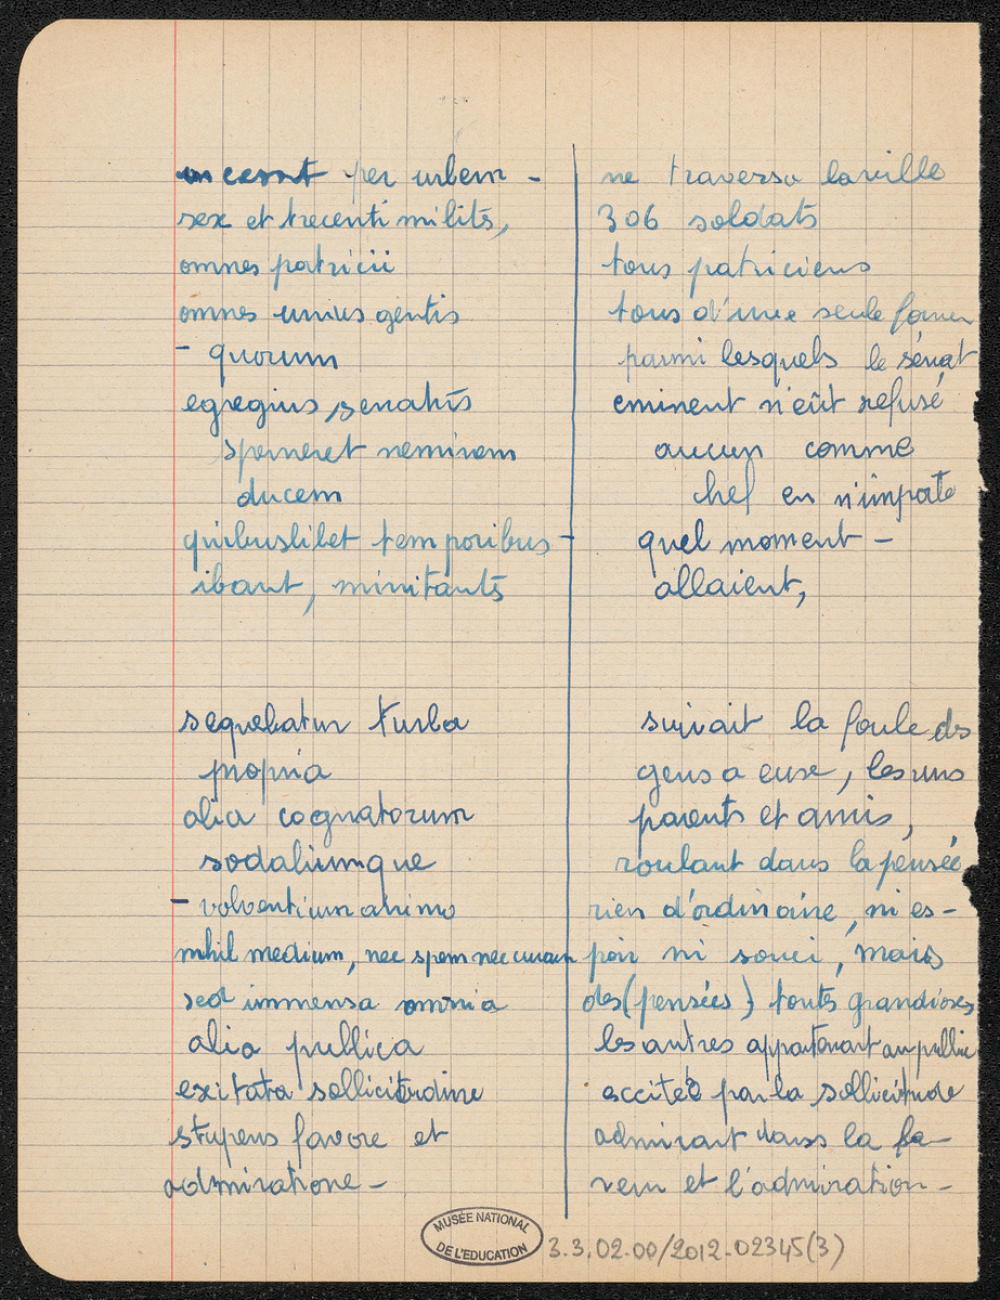 incessit per urbem - ne traversa la ville
sex et trecenti milites, 306 soldats
omnes patricii tous patriciens
omnes unius gentis tous d'une seule
- quorum parmi lesquels le sénat
egregius senatus eminent n'eût refusé
sperneret neminem aucun comme
ducem chef en n'importe
quibuslibet temporibus - quel moment -
ibant, minitantes allaient,
sequebatur turba suivait la foule des
propria gens a eux, les uns
alia cognatorum parents et amis,
sodaliumque roulant dans la pensée
- volventium animo rien d'ordinaire, ni es-
nihil medium, nec spem nec curam poir ni souci, mais
sed immensa omnia des (pensées) toutes grandioses
alia publica les autres appartenant au public
exitata sollicitudine excitée par la sollicitude
stupens favore et admirant dans la fa-
admiratione - veur et l'admiration -
MUSÉE NATIONAL
DE L'EDUCATION
3.3.02.00/2012-02345(3)